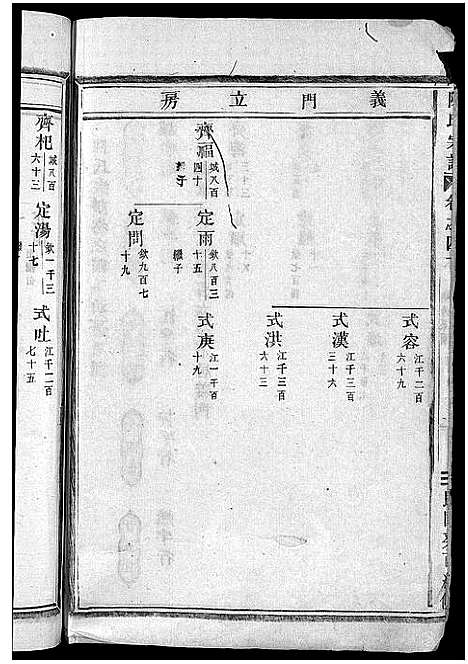 陳氏宗譜
義門立房
齊福 城八百四十
繼子
定雨 欽八百三十五
繼子
定問 欽九百七十九
式容 江千二百六十九
式漢 江千三百三十六
式洪 江千三百六十三
式庚 江一千百十九
齊杞 城八百六十三
定湯 欽一千三十七
式吐 江千二百七十五